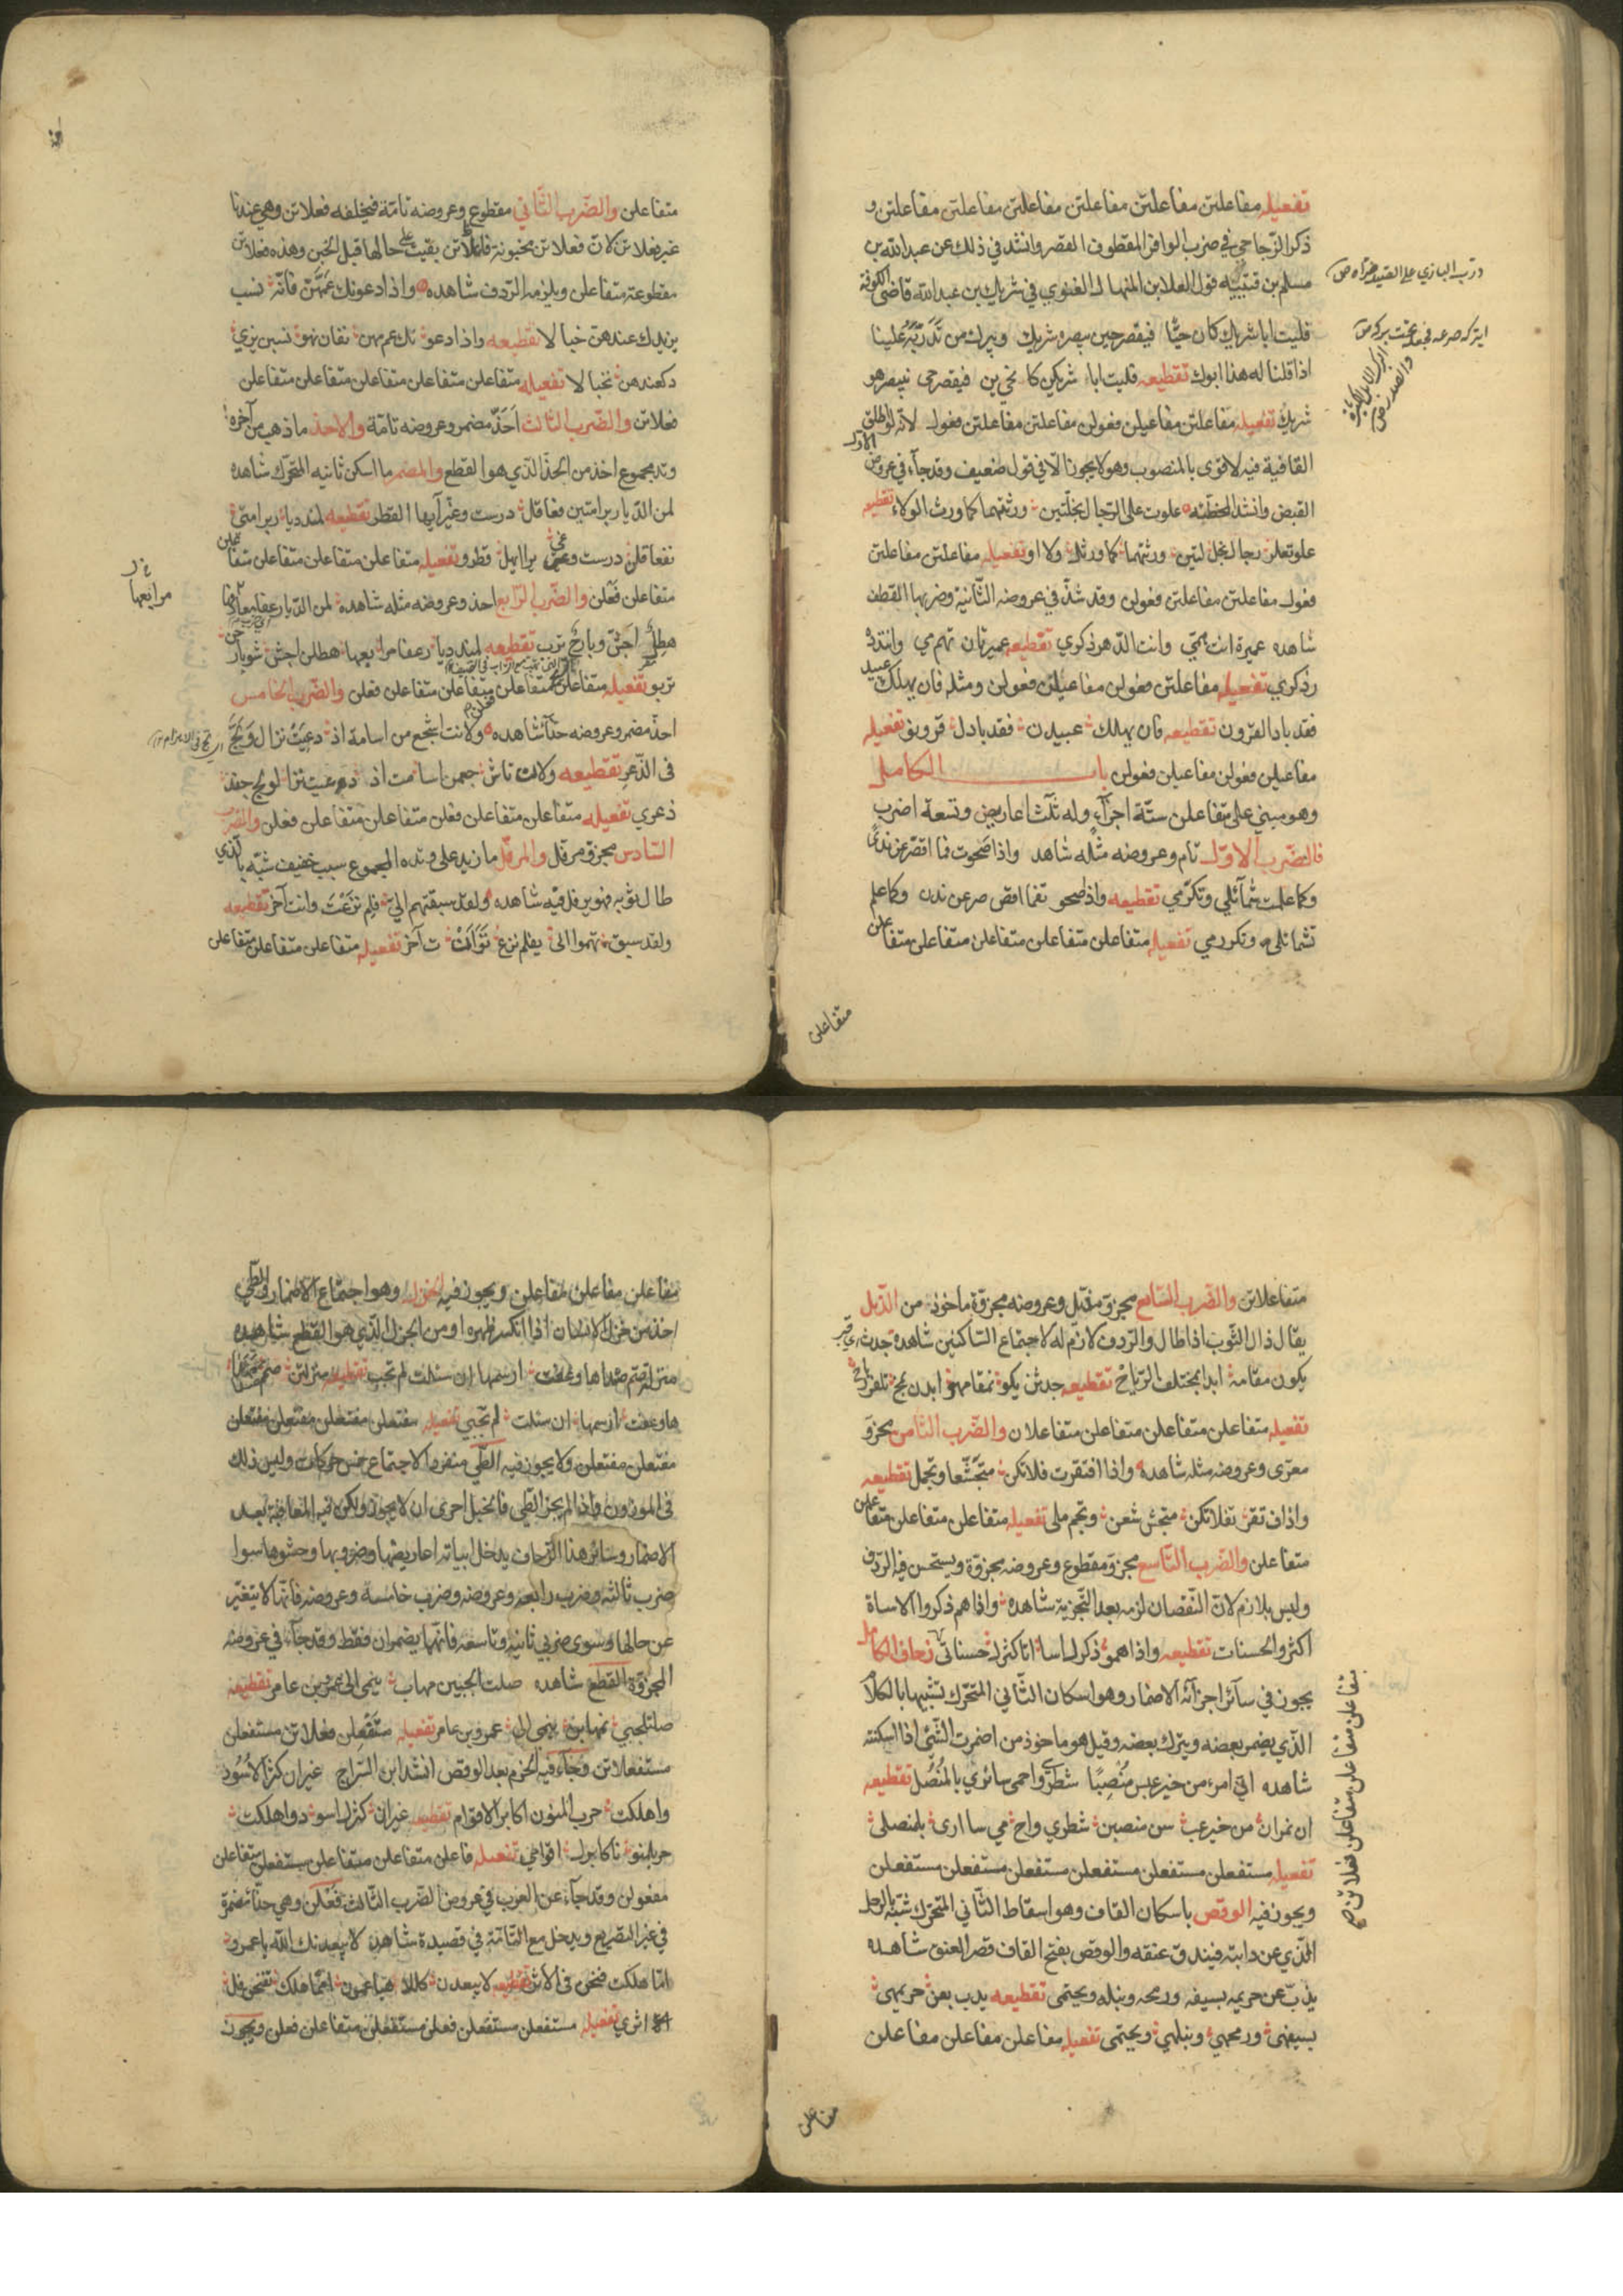 تفعيله مفاعلتن مفاعلتن مفاعلتن مفاعلتن مفاعلتن مفاعلتن و
ذكر الزجاجي في ضرب الوافر المقطوف القصر وانشد في ذلك عن عبد الله بن
مسلم بن قتيبه قول العلا بن المنهال الغنوي في شريك بن عبد الله قاضى الكوفة
فليت ابا شريك كان حيًّا فيقصر حين يبصره شريك ويترك من تَدَرّيه علينا
اذا قلنا له هذا ابوك تقطيعه فليت ابا شريكن كا نحي ين فيقصر حى نيبصر هو
شريك تفعيله مفاعلتن مفاعيلن فعولن مفاعلتن مفاعلتن فعول لانه لو اطلق
القافية فيه لاقوى بالمنصوب وهو لا يجوز الا في قول ضعيف وقد جآء في عروض الاول
القبض وانشد الحطيئه علوت على الرجال بخلّتين ورثتهما كما ورث الولاء تقطيعه
علوتعلر رجا لبخل لتين ورثتهما كما ورثل ولا او تفعيله مفاعلتن مفاعلتن
فعول مفاعلتن مفاعلتن فعولن وقد شذّ في عروضه الثّانية وضربها القطف
شاهده عميرة انت همّي وانت الدّهر ذكري تقطيعه عميرتان تهم مي وانتدد
رذكري تفعيله مفاعلتن فعولن مفاعيلتن فعولن ومثله فان يهلك عبيد
فقد باد القرون تقطيعه فان يهلك عبيدن فقد بادل قرونو تفعيله
مفاعيلن فعولن مفاعيلن فعولن باب الكامل
وهو مبني على متفاعلن ستّة اجزآء وله ثلث اعاريض وتسعة اضرب
فالضّرب الاوّل تام وعروضه مثله شاهد واذا صحوت فما اقصّر عن ندًى
وكما علمت شمآئلي وتكرّمي تقطيعه واذا صحو تفما اقص صر عن ندن وكما علم
تشمائلى وتكررمي تفعيله متفاعلن متفاعلن متفاعلن متفاعلن متفاعلن
متفاعلن
متفاعلن والضّرب الثّاني مقطوع وعروضه تامّة فيخلفه فعلاتن وهي عندنا
غير فعلاتن لانّ فعلاتن مخبونة فاعلاتن بقيت على حالها قبل الخبن وهذه فعلاتن
مقطوعة متفاعلن ويلزمه الردف شاهده واذا دعونك عمّهنّ فانّه نسب
يزيدك عندهن خبالا تقطيعه واذا دعو نك عم مهن نفان نهو نسبن يزي
دكعندهن نخبا لا تفعيله متفاعلن متفاعلن متفاعلن متفاعلن متفاعلن
فعلاتن والضّرب الثالث احذّ مضمر وعروضه تامّة والاحذ ما ذهب من آخره
وتد مجموع اخذ من الحذذ الّذي هو القطع والمضمر ما اسكن ثانيه المتحرّك شاهده
لمن الديار برامتين فعاقل درست وغيّر آيها القطر تقطيعه لمندديا ربرامتى
نفعاقلن درست وغي يرا ايهل قطرو تفعيله متفاعلن متفاعلن متفاعلن متفاعلن
متفاعلن فَعْلن والضّرب الرّابع احذ وعروضه مثله شاهده لمن الدّيار عفا معارفها
هطلٌ اجشّ وبارحٌ ترب تقطيعه لمندديا رعفا مرا بعها هطلن اجش شوبار حن
تربو تفعيله متفاعلن متفاعلن متفاعلن متفاعلن فعلن والضّرب الخامس
احذّ مضمر وعروضه حذّآء شاهده ولانت اشجع من اسامة اذ دعيت نزال ولجّ
فى الذّعر تقطيعه ولانت تاش جعمن اسا مت اذ دعيت نزا لو لج جفذ
ذعري تفعيله متفاعلن متفاعلن فعلن متفاعلن متفاعلن فعلن والضّرب
السّادس مجزوّ مرفل والمرفّل ما زيد على وتده المجموع سبب خفيف شبّه بالّذي
طال ثوبه فهو يرفل فيه شاهده ولقد سبقتهم اليّ فلم نزعت وانت آخر تقطيعه
ولقد سبق تهموا الى يفلم نزع تَوَاَنْ ت آخر تفعيله متفاعلن متفاعلن متفاعلن
مرابعها
متفاعلاتن والضّرب السّابع مجزوّ مذيل وعروضه مجزوّة ماخوذ من الذّيل
يقال ذال الثّوب اذا طال والردف لازم له لاجتماع السّاكنين شاهده جدث
يكون مقامه ابدا بمختلف الرّياح تقطيعه جدثن يكو نمقامهو ابدن بمخ تلفرر ياح
تفعيله متفاعلن متفاعلن متفاعلن متفاعلان والضّرب الثّامن مجزوّ
معرّى وعروضه مثله شاهده واذا افتقرت فلا تكن متجشّعا وتجمل تقطيعه
واذاف تقر تفلا تكن متجش شعن وتجم ملى تفعيله متفاعلن متفاعلن متفاعلن
متفاعلن والضّرب التّاسع مجزوّ مقطوع وعروضه مجزوّة ويستحسن فيه الردف
وليس بلازم لانّ النّقصان لزمه بعد التّجزية شاهده واذا هم ذكروا الاساة
اكثروا الحسنات تقطيعه واذا همو ذكرل اسا اتا كثرل حسناتى زحاف الكامل
يجوز في سآئر اجزآئه الاضمار وهو اسكان الثّاني المتحرّك تشبيها بالكلام
الّذي يضمر بعضه ويترك بعضه وقيل هو ماخوذ من اضمرت الشّئ اذا اسكنته
شاهده انّي امرء من خير عبس مَنْصِبًا شطري واحمى سائري بالمُنْصُل تقطيعه
ان نمرأن من خير عب سن منصبن شطري واح مي سا ارى بلمنصلى
تفعيله مستفعلن مستفعلن مستفعلن مستفعلن مستفعلن مستفعلن
ويجوز فيه الوقص باسكان القاف وهو اسقاط الثّاني المتحرّك شبّه بالرجل
الّذي عن دابته فيندقّ عنقه والوقص بفتح القاف قصر العنق شاهده
يذبّ عن حريمه بسيفه ورمحه ونبله ويحتمى تقطيعه يذب بعن حريمهى
بسيفهى ورمحهي ونبلهي ويحتمى تفعيله مفاعلن مفاعلن مفاعلن
متفاعلن متفاعلن متفاعلن فعلاتن صح
مفاعلن
مفاعلن مفاعلن مفاعلن ويجوز فيه الخزل وهو اجتماع الاضمار والطّي
اخذ من خزل الانسان اذا انكسر ظهره او من الجزل الّذي هو القطع شاهده
منزلة صم صداها وعفت ارسمها ان سئلت لم تجب تقطيعه منزلتن صم مصدا
هاوعفت ارسمها ان سئلت لم تجبي تفعيله مفتعلن مفتعلن مفتعلن مفتعلن
مفتعلن مفتعلن ولا يجوز فيه الطّي منفردا لاجتماع خمس حركات وليس ذلك
فى الموزون واذا لم يجز الطّي فالخبل احرى ان لا يجوز ولكن فيه المعاقبة بعد
الاضمار وسائر هذا الزحاف يدخل ابياته اعاريضها وضروبها وحشوها سوا
ضرب ثالثه وضرب رابعه وعروضه وضرب خامسة وعروضه فانّها لا يتغيّر
عن حالها وسوى ضربي ثانيه وتاسعه فانّهما يضمران فقط وقد جآء في عروضه
المجزوّة القطع شاهده صلت الجبين مهاب ينمى الى عمرو بن عامر تقطيعه
صلتلجبي نمهابن ينمى الى عمرو بن عامر تفعيله مستفعلن فعلاتن مستفعلن
مستفعلاتن وجآء فيه الخزم بعد الوقص انشد ابن السّراج غيران كنز الاسود
واهلكت حرب المنون اكابر الاقوام تقطيعه غيران كنزل اسو دواهلكت
حربلمنو ناكابرل اقوامي تفعيله فاعلن متفاعلن متفاعلن مستفعلن متفاعلن
مفعولن وقد جآء عن العرب في عروض الضّرب الثّالث فَعْلن وهي حذّآء مضمرة
في غير التصريع ويدخل مع التّامّة في قصيدة شاهده لا يبعدنك الله يا عمرو
امّا هلكت فنحن فى الاثر تقطيعه لا يبعدن كللا هياعمرو امما هلك تفنحن فل
اثري تفعيله مستفعلن مستفعلن فعلن مستفعلن متفاعلن فعلن ويجوز